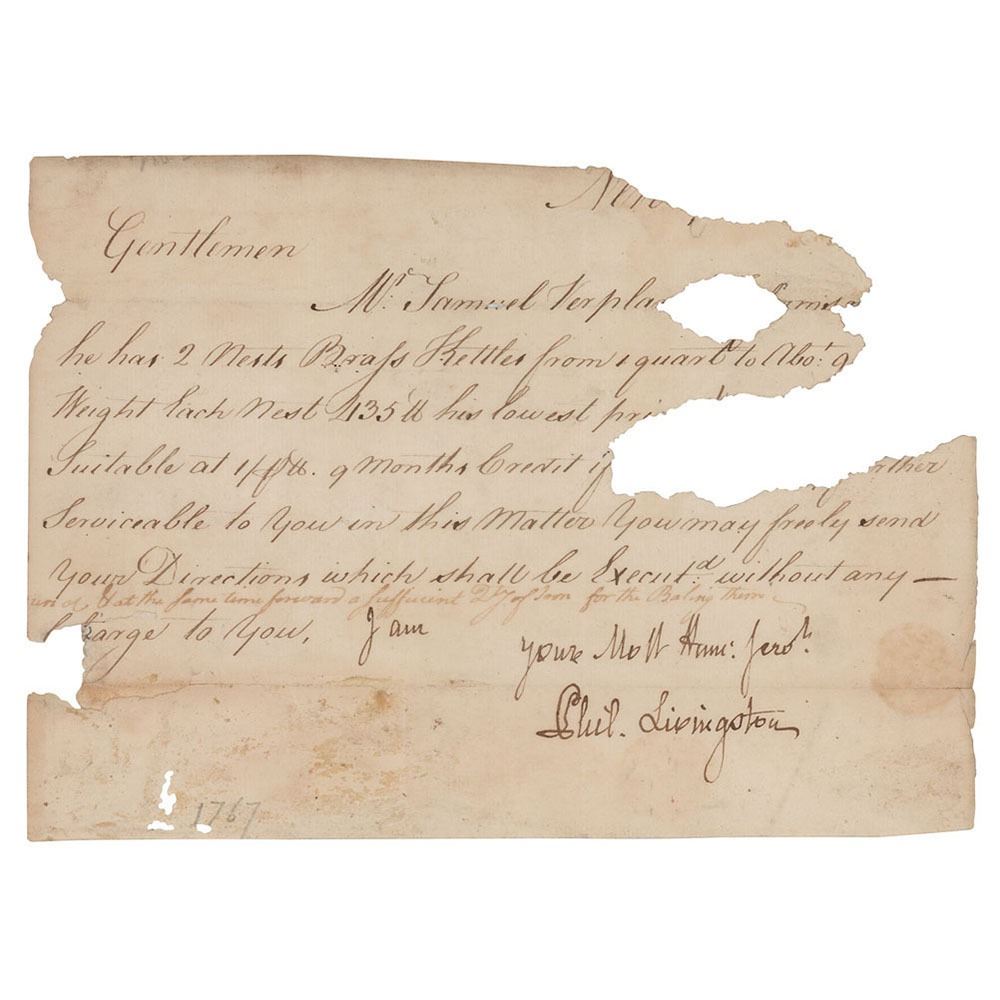 New
Gentlemen
Mr. Samuel Verpla
he has 2 Nests Brass Kettles from 1 quart to Abot. 9
Weight Each Nest 135 lb his lowest pri
Suitable at 9 Months Credit if rther
Serviceable to you in this Matter You may freely send
Your Directions which shall be Executd. without any —
& at the same time forward a sufficient Qty of Iron for the Baling them
Charge to you, I am
your Most Hum: Servt.
Phil. Livingston
1767